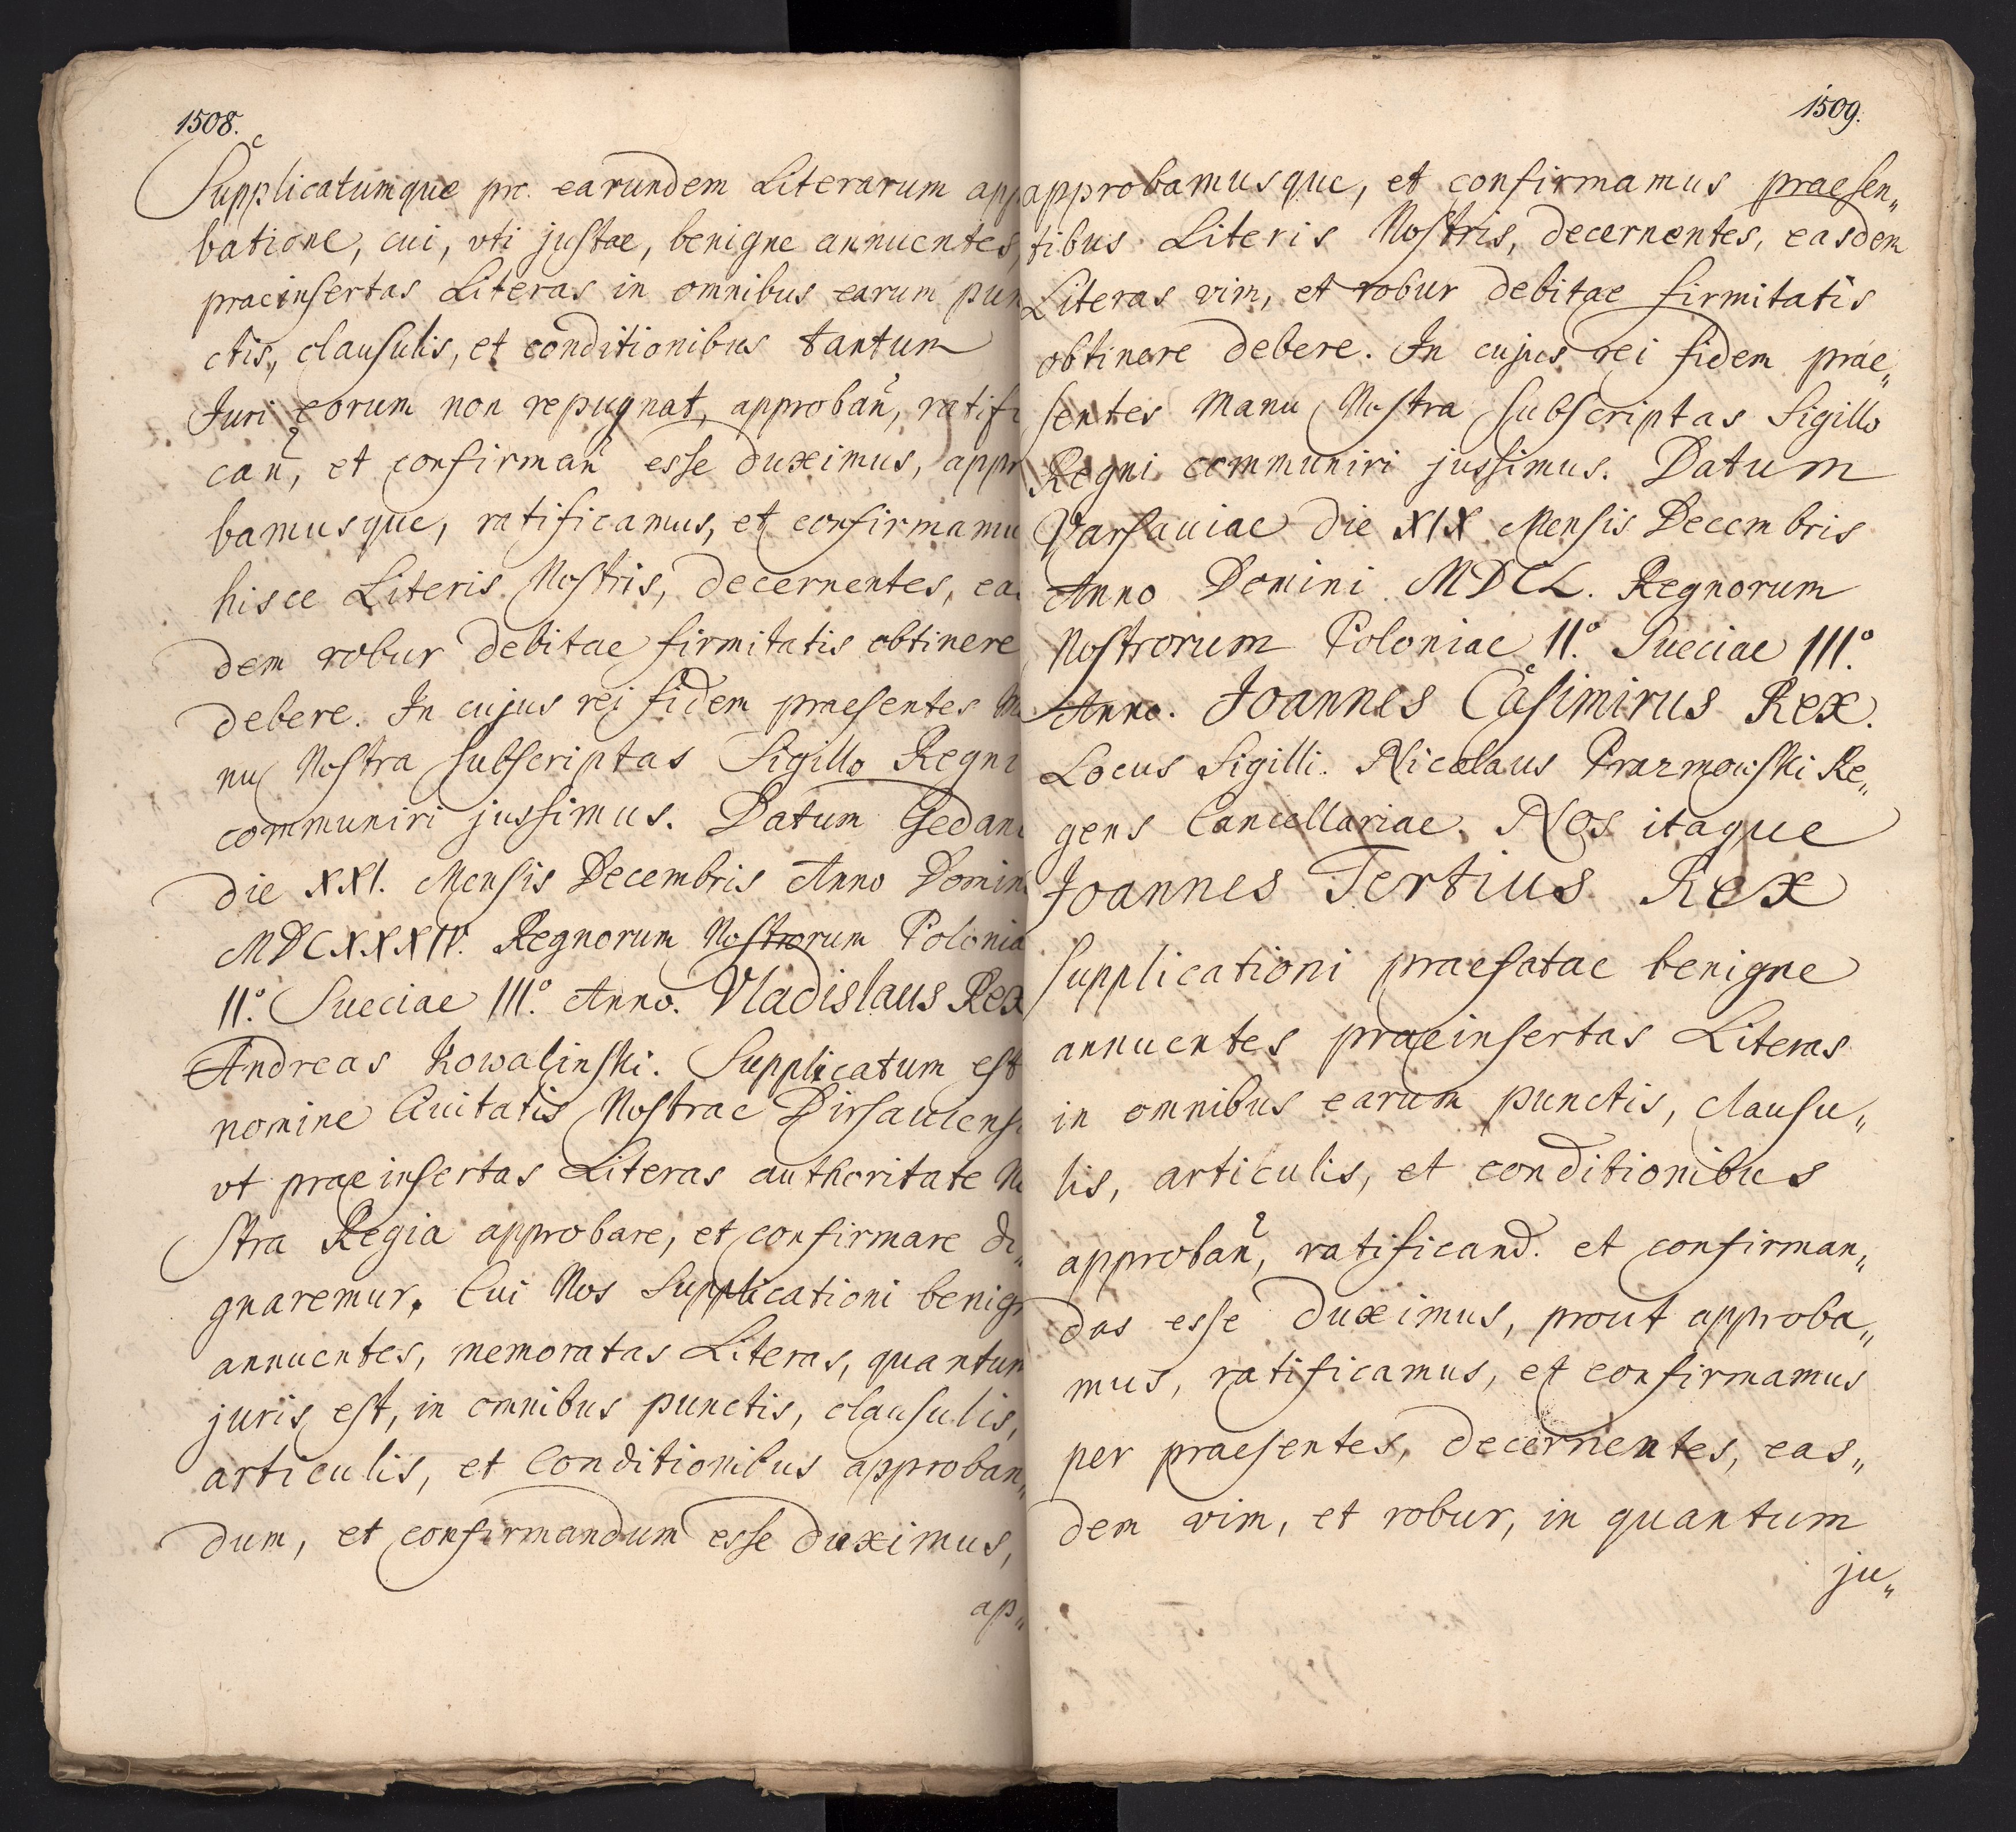 1508.
Supplicatumque pro earundem Literarum app
batione, cui, vti justae, benigne annuentes,
praeinsertas Literas in omnibus earum pun
ctis, clausulis, et conditionibus tantum
Juri eorum non repugnat, approban̄, ratifi
can̄, et confirman̄ esse duximus, appr
bamusque, ratificamus, et confirmamu
hisce Literis Nostris, decernentes, eas
dem robur debitae firmitatis obtinere
debere. In cujus rei fidem praesentes Ma
nu Nostra subscriptas Sigillo Regni
communiri jussimus. Datum Gedani
die XXI. Mensis Decembris Anno Domini
MDCXXXIV. Regnorum Nostrorum Polonia
II.° Sueciae III.° Anno. Vladislaus Rex
Andreas Kowalinski. Supplicatum est
nomine Civitatis Nostrae Dirsauiensi
vt praeinsertas Literas authoritate No
stra Regia approbare, et confirmare di„
gnaremur. Cui Nos Supplicationi benign
annuentes, memoratas Literas, quantum
juris est, in omnibus punctis, clausulis,
articulis, et Conditionibus approban„
dum, et confirmandum esse duximus,
ap„
1509.
approbamusque, et confirmamus praesen„
tibus Literis Nostris, decernentes, easdem
Literas vim, et robur debitae firmitatis
obtinere debere. In cujus rei fidem prae„
sentes Manu Nostra subscriptas Sigillo
Regni communiri jussimus. Datum
Varsauiae die XIX Mensis Decembris
Anno Domini MDCL. Regnorum
Nostrorum Poloniae II.° Sueciae III.°
Anno. Joannes Casimirus Rex.
Locus Sigilli. Nicolaus Prazmowski Re„
gens Cancellariae. Nos itaque
Joannes Tertius Rex
Supplicationi praefatae benigne
annuentes praeinsertas Literas
in omnibus earum punctis, clausu„
lis, articulis, et conditionibus
approban̄, ratificand. et confirman„
das esse duximus, prout approba„
mus, ratificamus, et confirmamus
per praesentes, decernentes, eas„
dem vim, et robur, in quantum
ju„